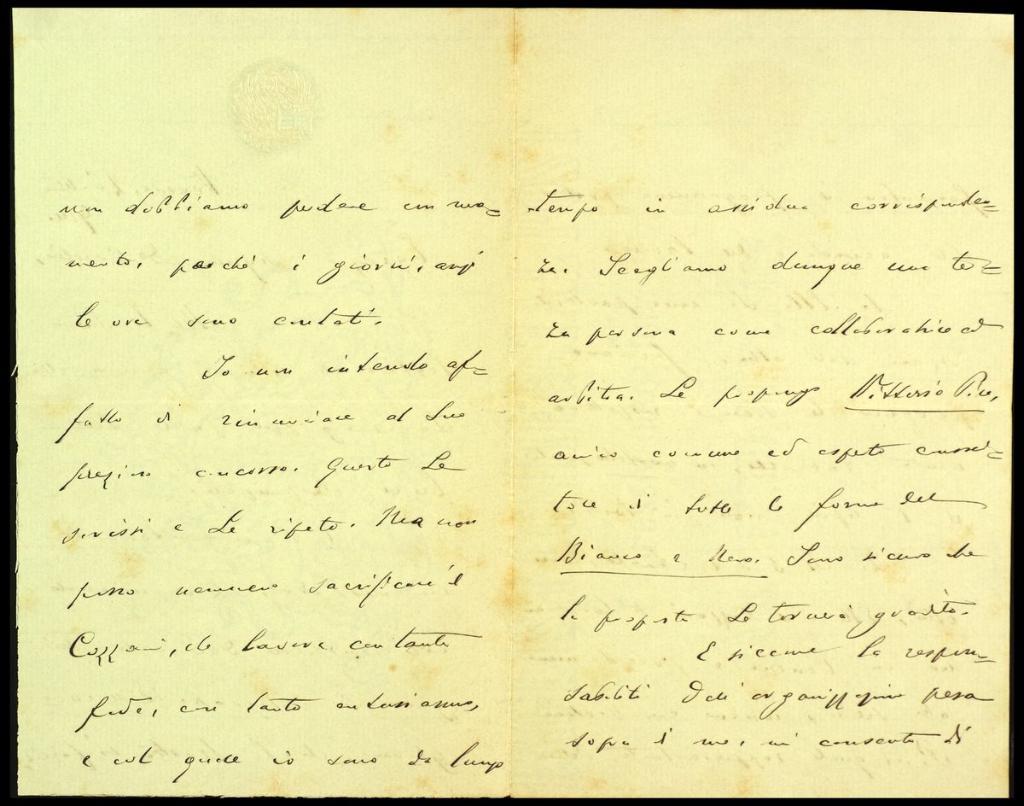 non dobbiamo perdere un mo=
mento, perché i giorni, anzi
le ore sono contati.
Io non intendo af=
fatto di rinunciare al Suo
prezioso concorso. Questo Le
scrissi e Le ripeto. Ma non
posso nemmeno sacrificare il
Cozzani, che lavora con tanta
fede, con tanto entusiasmo,
e col quale io sono da lungo
tempo in assidua corrisponden=
za. Scegliamo dunque una ter=
za persona come collaboratrice ed
arbitra. Le propongo Vittorio Pica,
amico comune ed esperto conosci=
tore di tutte le forme del
Bianco e Nero. Sono sicuro che
la proposta Le tornerà gradita.
E siccome la respon=
sabilità dell'organizzazione pesa
sopra di me, mi consenta di